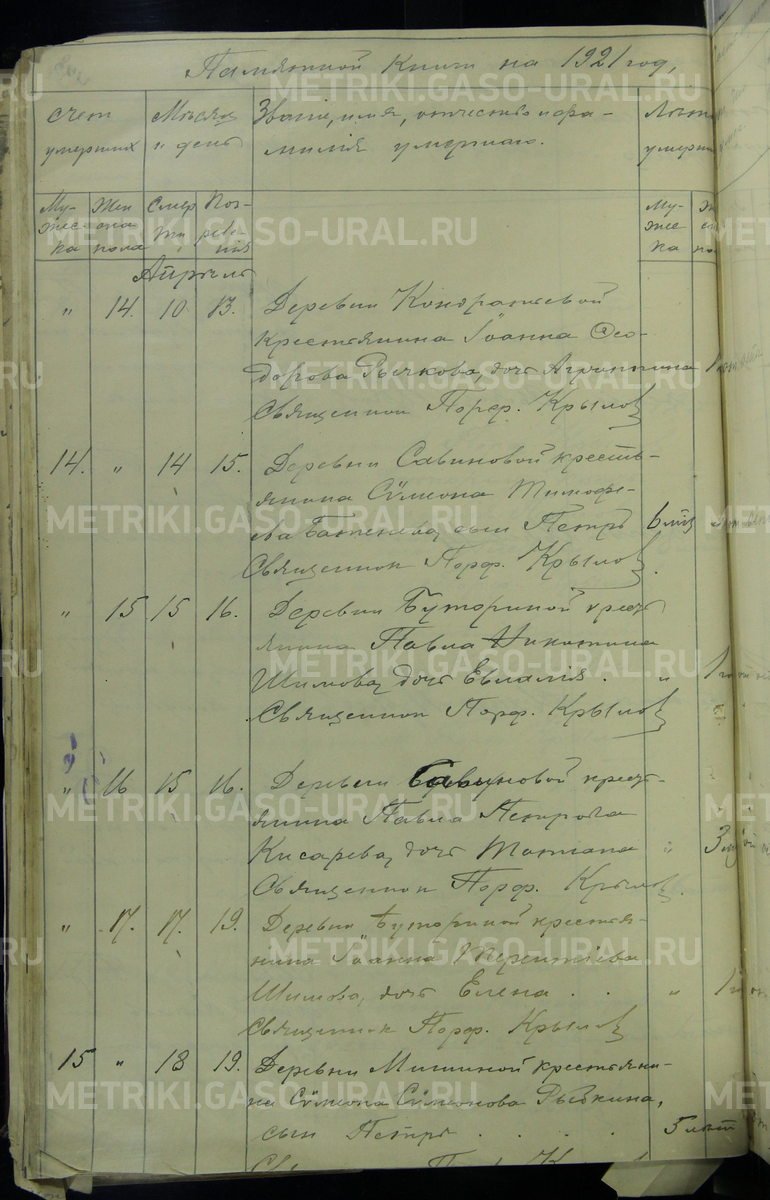 Памятной Книги на 1921 год,
счет умерших
Месяц и день
Званіе, имя, отчество и фамилія умершаго.
Лета умерш
Мужеска
Жен пола
Смерти
Погребенія
Муже ка
Апрель
" 14. 10 13. Деревни Кондратьевой
крестьянина Іоанна Ѳео-
дорова Рычкова, дочь Агриппина 1
Священник Порф. Крылов
14. " 14 15. Деревни Савиновой кресть-
янина Сѵмеона Тимофе-
ева сын Петръ 6
Священник Порф. Крылов.
" 15 15 16. Деревни Буториной крест
янина Павла Никитина
Шимова, дочь Евлалія . " 1
Священник Порф. Крылов
" 16 15 16. Деревни Савиновой крест-
янина Павла Петрова
Кисарева, дочь Татiана " 3
Священник Порф. Крылов.
" 17. 17. 19. Деревни Буториной крестья-
нина Іоанна Терентіева
Шимова, дочь Елена . . " 1
Священник Порф. Крылов
15 " 18 19. Деревни Мишиной крестьяни-
на Сѵмеона Сѵмеонова Рыбкина,
сын Петръ . . . . 5 лет
METRIKI.GASO-URAL.RU